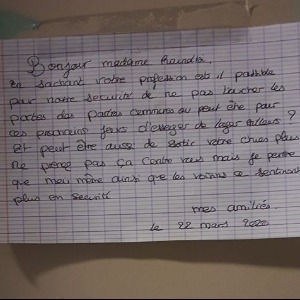 Bonjour madame
En sachant votre profession est il possible
pour notre securité de ne pas toucher les
portes des parties communes ou peut être pour
ces prochains jours d'essayer de loger ailleurs ?
Et peut être aussi de sortir votre chien plus
ne prenez pas ça contre vous mais je pense
que moi même ainsi que les voisins se
plus en securité
mes amitiés.
le 22 mars 2020